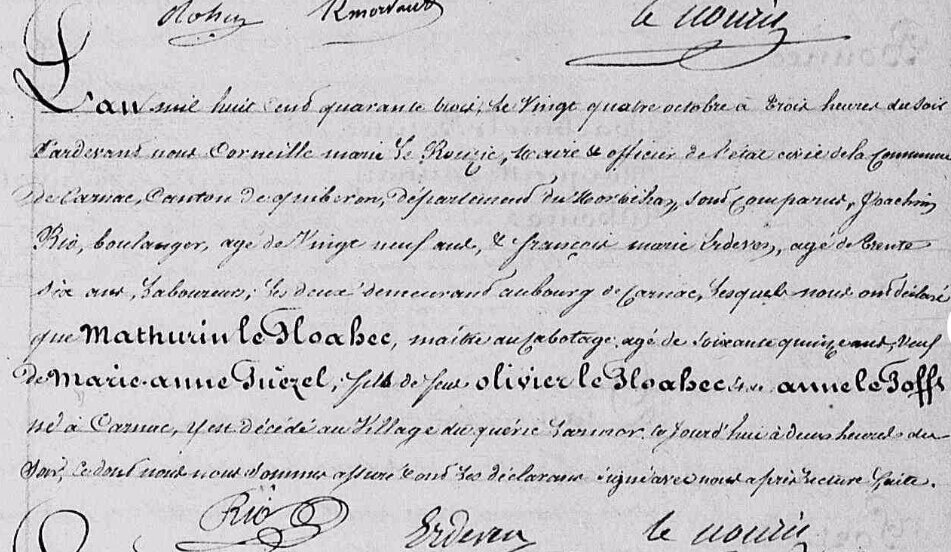 Rohu Kmorvant le rouzic
L'an mil huit cent quarante trois, le vingt quatre octobre à trois heures du soir
Pardevant nous Corneille marie Le Rouzic, Maire & officier de l'état civil de la Commune
de Carnac, Canton de quiberon, département du Morbihan, sont comparus, Joachim
Rio, boulanger, agé de vingt neuf ans, & françois marie Erdeven, agé de trente
six ans, Laboureur; les deux demeurant au bourg de Carnac, lesquels nous ont déclaré
que Mathurin le Floahec, maître au cabotage, agé de soixante quinze ans, veuf
de Marie-anne Guézel, fils de feus olivier le Floahec & de anne le Goff
né à Carnac, y est décédé au village du quéric Larmor ce jourd'hui à deux heures du
soir, ce dont nous nous sommes assuré dont les déclarans signé avec nous après lecture faite.
Rio Erdeven le rouzic